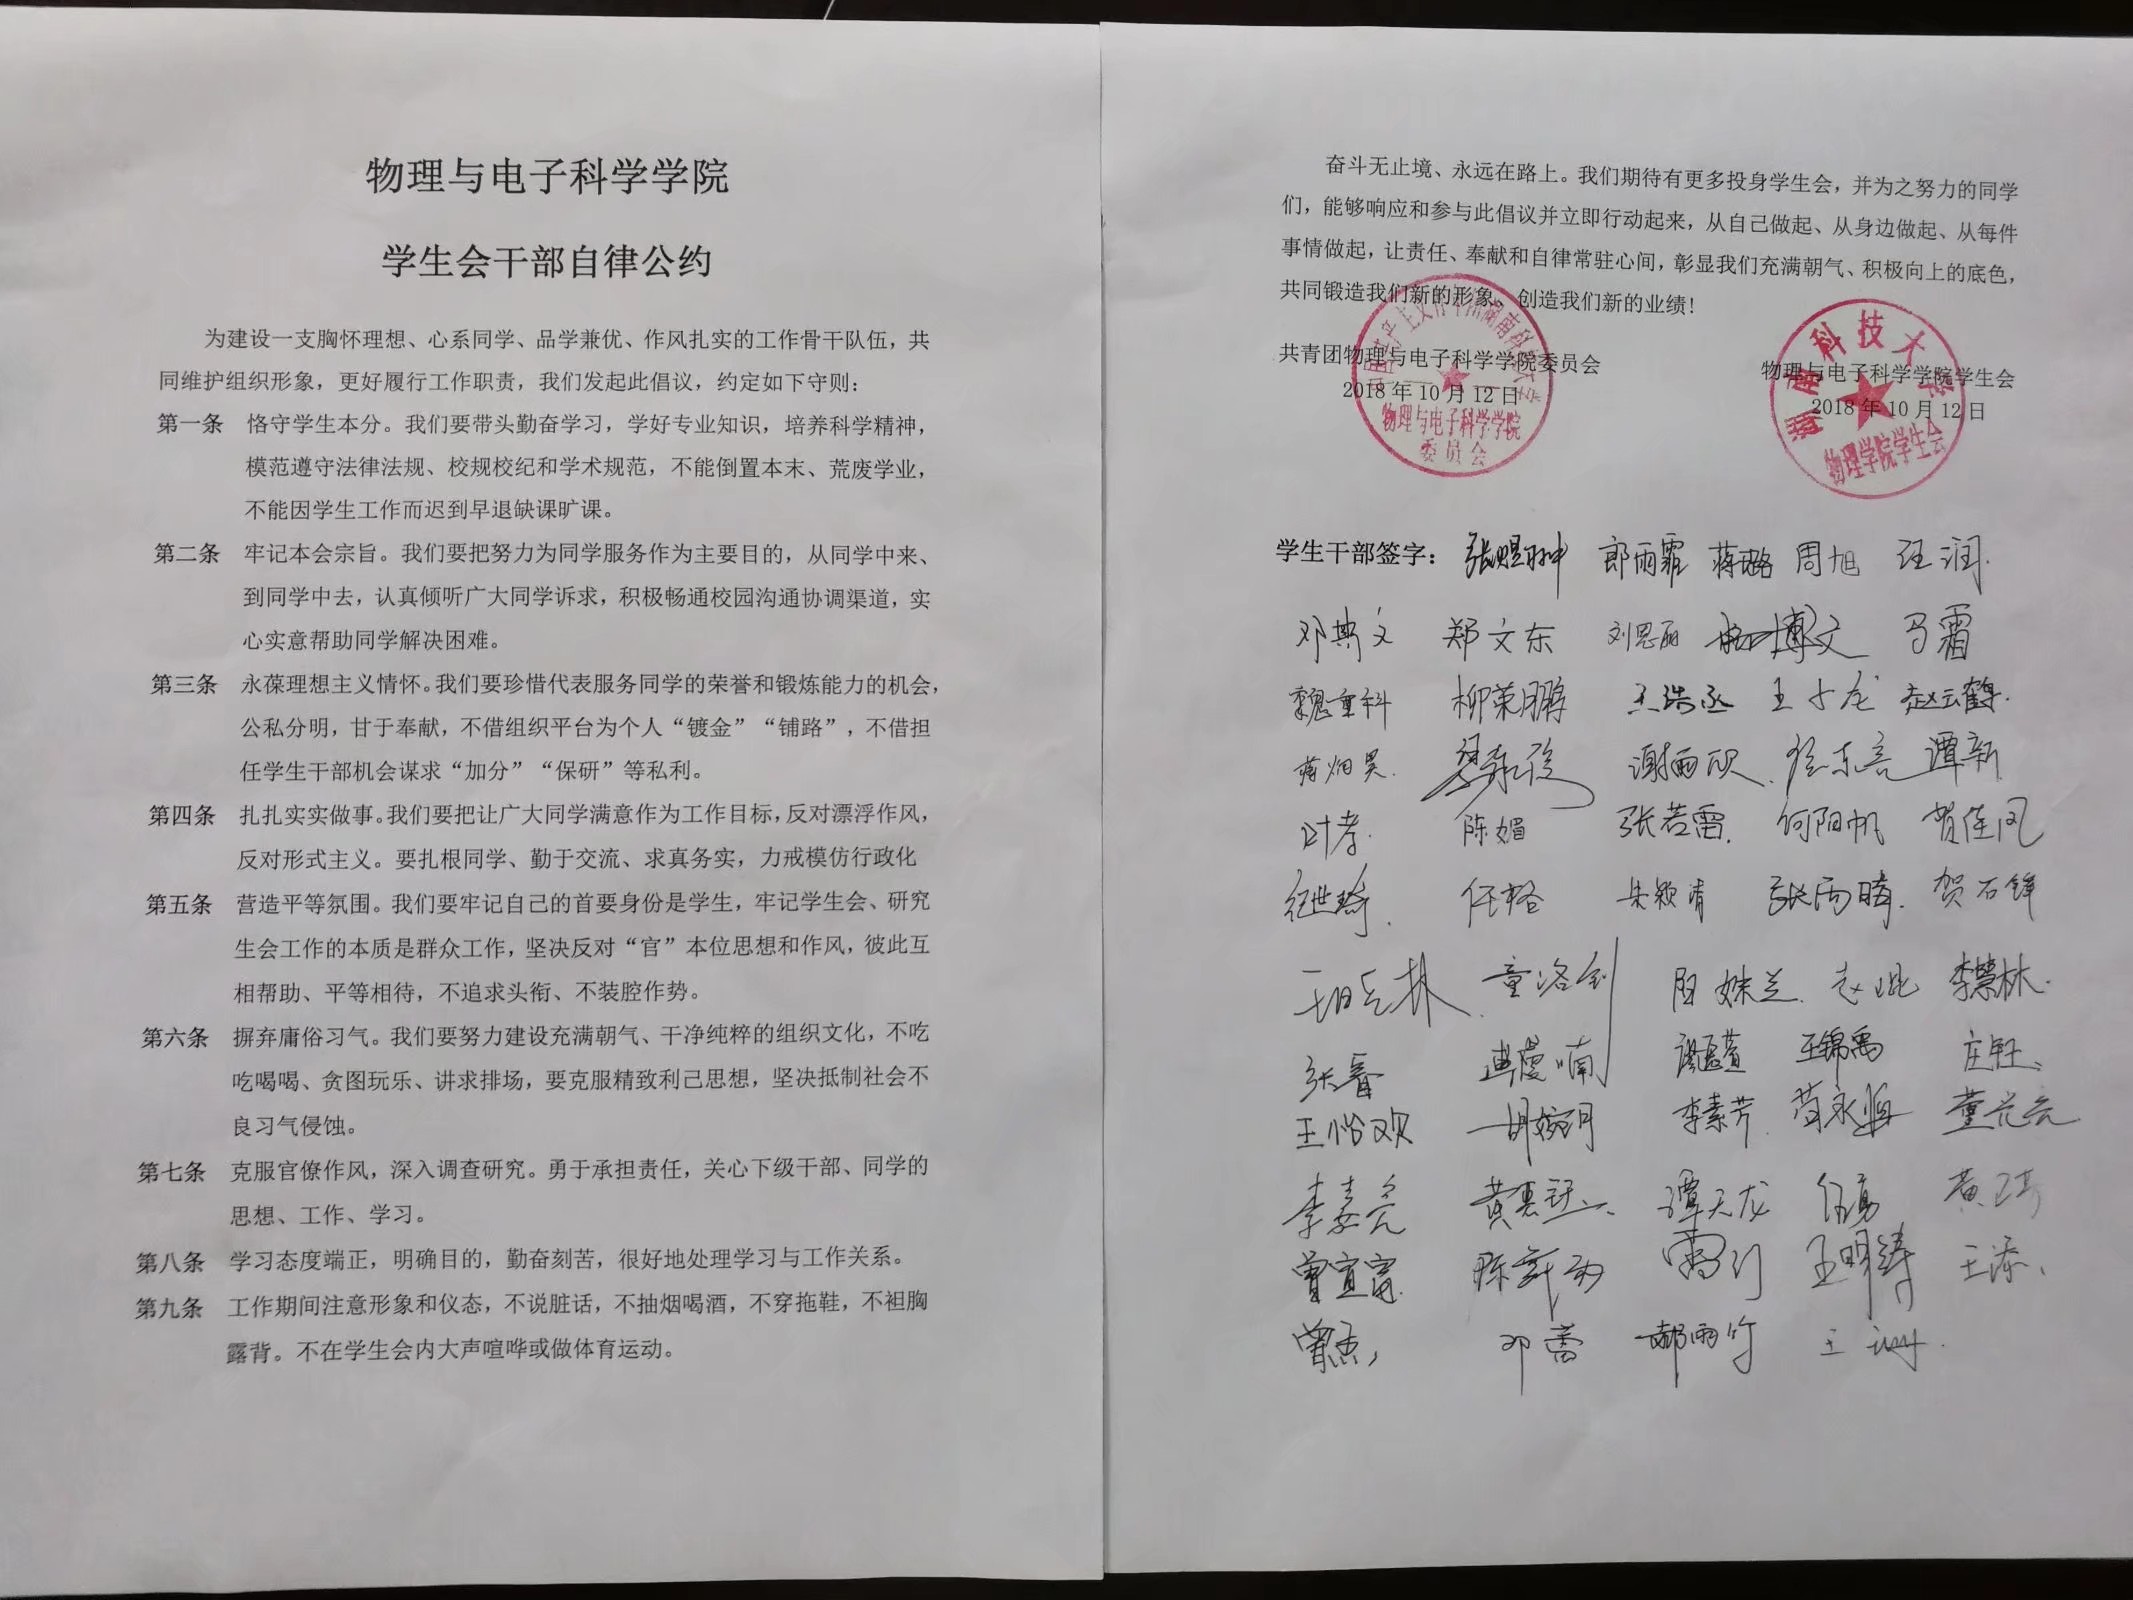 物理与电子科学学院
学生会干部自律公约
为建设一支胸怀理想、心系同学、品学兼优、作风扎实的工作骨干队伍，共
同维护组织形象，更好履行工作职责，我们发起此倡议，约定如下守则：
第一条 恪守学生本分。我们要带头勤奋学习，学好专业知识，培养科学精神，
模范遵守法律法规、校规校纪和学术规范，不能倒置本末、荒废学业，
不能因学生工作而迟到早退缺课旷课。
第二条 牢记本会宗旨。我们要把努力为同学服务作为主要目的，从同学中来、
到同学中去，认真倾听广大同学诉求，积极畅通校园沟通协调渠道，实
心实意帮助同学解决困难。
第三条 永葆理想主义情怀。我们要珍惜代表服务同学的荣誉和锻炼能力的机会，
公私分明，甘于奉献，不借组织平台为个人“镀金”“铺路”，不借担
任学生干部机会谋求“加分”“保研”等私利。
第四条 扎扎实实做事。我们要把让广大同学满意作为工作目标，反对漂浮作风，
反对形式主义。要扎根同学、勤于交流、求真务实，力戒模仿行政化
第五条 营造平等氛围。我们要牢记自己的首要身份是学生，牢记学生会、研究
生会工作的本质是群众工作，坚决反对“官”本位思想和作风，彼此互
相帮助、平等相待，不追求头衔、不装腔作势。
第六条 摒弃庸俗习气。我们要努力建设充满朝气、干净纯粹的组织文化，不吃
吃喝喝、贪图玩乐、讲求排场，要克服精致利己思想，坚决抵制社会不
良习气侵蚀。
第七条 克服官僚作风，深入调查研究。勇于承担责任，关心下级干部、同学的
思想、工作、学习。
第八条 学习态度端正，明确目的，勤奋刻苦，很好地处理学习与工作关系。
第九条 工作期间注意形象和仪态，不说脏话，不抽烟喝酒，不穿拖鞋，不袒胸
露背。不在学生会内大声喧哗或做体育运动。
奋斗无止境、永远在路上。我们期待有更多投身学生会，并为之努力的同学
们，能够响应和参与此倡议并立即行动起来，从自己做起、从身边做起、从每件
事情做起，让责任、奉献和自律常驻心间，彰显我们充满朝气、积极向上的底色，
共同锻造我们新的形象，创造我们新的业绩！
共青团物理与电子科学学院委员会
2018 年 10 月 12 日
物理与电子科学学院
委员会
物理与电子科学学院学生会
2018 年 10 月 12 日
湖南科技大学
物理学院学生会
学生干部签字： 郎雨霏 蒋璐 周旭 汪润
邓典文 郑文东 刘思丽 马霜
魏重科 柳荣鹏 王浩丞 王小龙 赵云鹤
谢雨欣 徐东亮 谭新
叶孝 陈媚 张若雷 何阳帆 贺佳风
任整 朱颖清 张雨晴 贺石锋
童洛剑 李慧林
张睿 王锦禹 庄钰
王怡欢 胡婉月 李素芳 董兴云
谭天龙 任勇
曾宜富 王明涛 王添
曾杰 邓蕾 郝雨竹 王